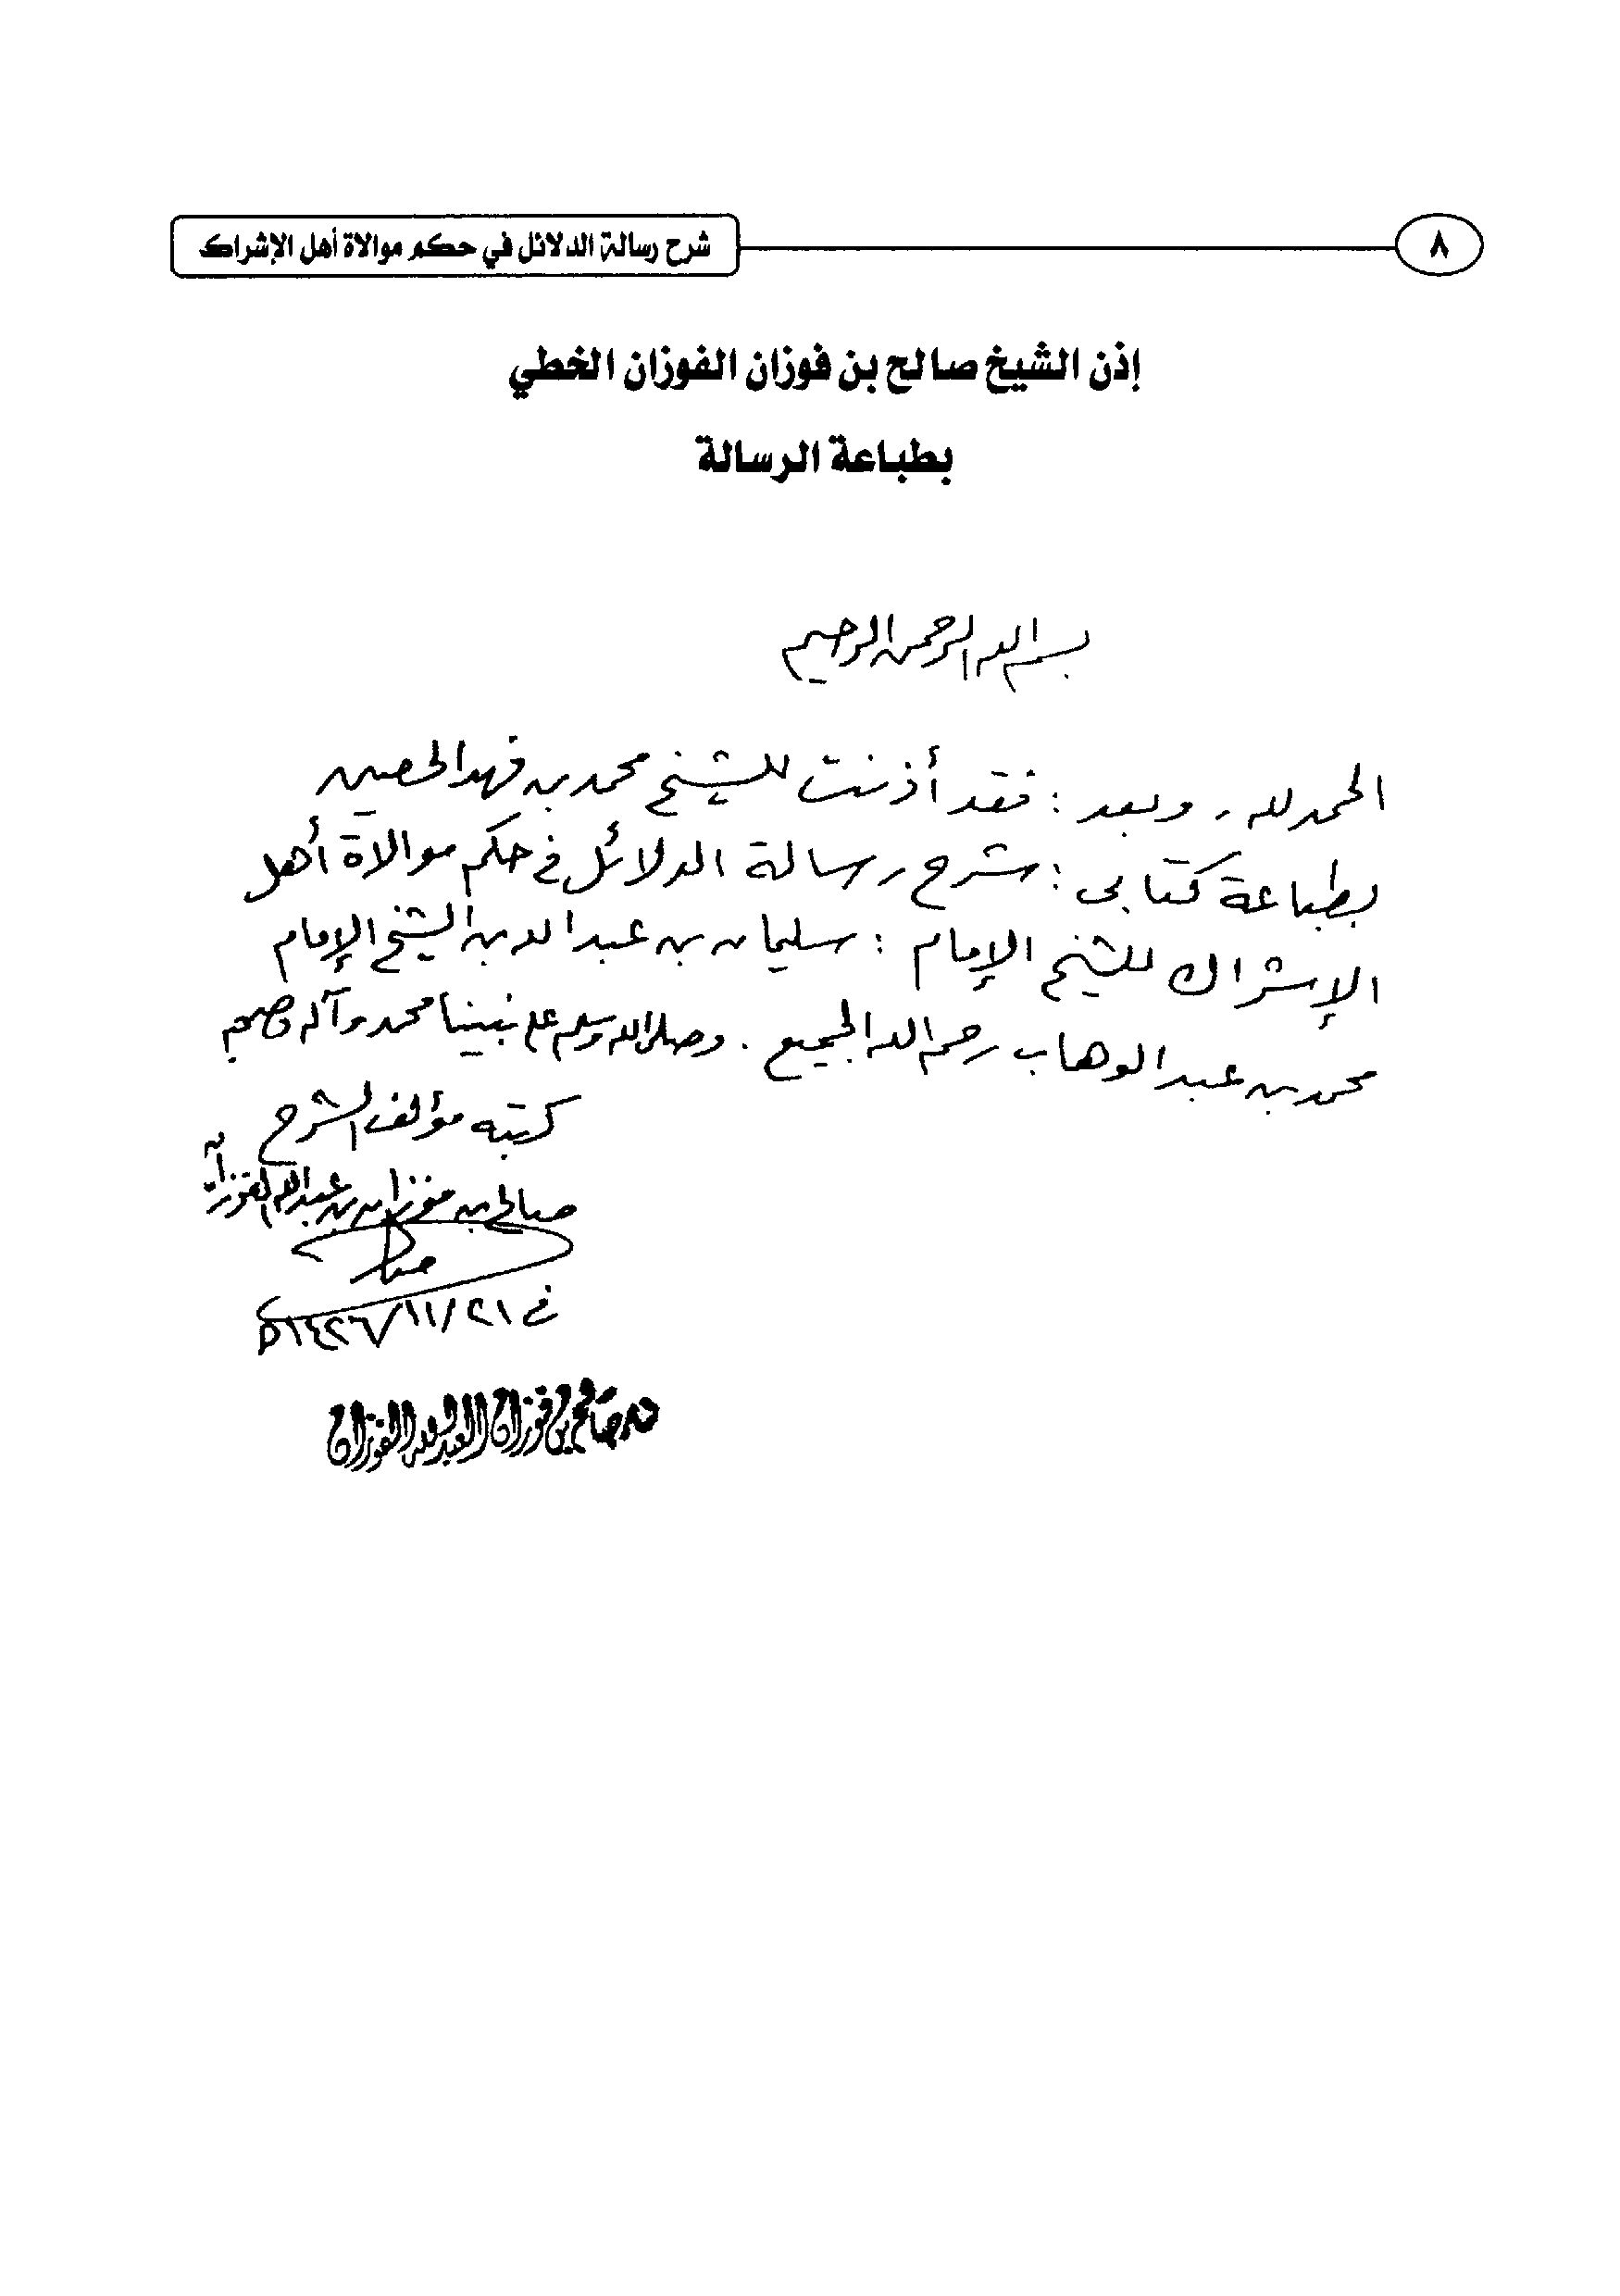 ٨
شرح رسالة الدلائل في حكم موالاة أهل الإشراك
إذن الشيخ صالح بن فوزان الفوزان الخطي
بطباعة الرسالة
بسم الله الرحمن الرحيم
الحمد لله . وبعد : فقد أذنت للشيخ محمد بن فهد الحصين
بطباعة كتابى : شرح رسالة الدلائل في حكم موالاة أهل
الإشراك للشيخ الإمام : سليمان بن عبد الله بن الشيخ الإمام
محمد بن عبد الوهاب رحم الله الجميع . وصلى الله وسلم على نبينا محمد وآله وصحبه
كتبه مؤلف الشرح
صالح بن فوزان بن عبد الله الفوزان
في ٢١/١١/١٤٢٦هـ
صالح بن فوزان العبد الله الفوزان